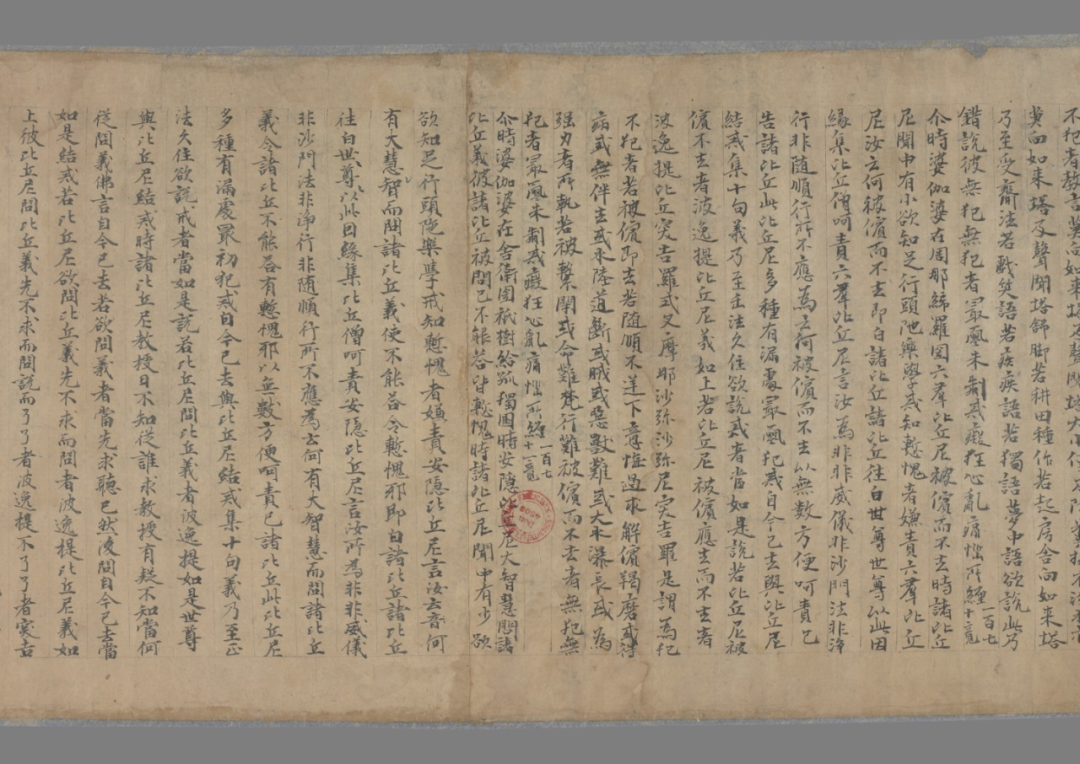 不犯者
糞向如來塔及聲聞塔餝脚若耕田種作若起房舍向如來塔
乃至受齋法若戲笑語若疾疾語若獨語夢中語欲說此乃
錯說彼無犯無犯者最風未制戒癡狂心亂痛惱所纏 一百七十竟
尒時婆伽婆在國那絺羅國六羣比丘尼被儐而不去時諸比丘
尼聞中有小欲知足行頭陁樂學戒知慙愧者嫌責六羣比丘
尼汝云何被儐而不去即白諸比丘諸比丘往白世尊世尊以此因
緣集比丘僧呵責六羣比丘尼言汝為非非威儀非沙門法非淨
行非随順行所不應為云何被儐而不去以無數方便呵責已
告諸比丘此比丘尼多種有漏處冣初犯戒自今已去與比丘尼
結戒集十句義乃至正法久住欲說戒者當如是說若比丘尼被
儐不去者波逸提比丘尼義如上若比丘尼被儐應去而不去者
波逸提比丘突吉羅式叉摩那沙弥沙弥尼突吉羅是謂為犯
不犯者若被儐即去若随順不逆下意悔過求解儐羯磨或得
病或無伴去或水陸道斷或賊或惡獸難或大水瀑長或為
强力者所執若被繫閉或命難梵行難被儐而不去者無犯無
犯者冣風未制戒癡狂心亂痛惱所纏 一百七十一竟
尒時婆伽婆在舍衛國祇樹給孤獨園時安隱比丘尼大智慧問諸
比丘義彼諸比丘被問已不能荅皆慙愧時諸比丘尼聞中有少欲
欲知足行頭陁樂學戒知慙愧者嫌責安隱比丘尼言汝云何
有大慧智而問諸比丘義使不能荅令慙愧邪即白諸比丘諸比丘
往白世尊以此因緣集比丘僧呵責安隱比丘尼言汝所為非非威儀
非沙門法非淨行非随順行所不應為云何有大智慧而問諸比丘
義令諸比丘不能荅有慙愧邪以無數方便呵責已諸比丘此比丘尼
多種有漏處冣初犯戒自今已去與比丘尼結戒集十句義乃至正
法久住欲說戒者當如是說若比丘尼問比丘義者波逸提如是世尊
與比丘尼結戒時諸比丘尼教授日不知從誰求教授有疑不知當何
從問義佛言自今已去若欲問義者當先求聽已然後問自今已去當
如是結戒若比丘尼欲問比丘義先不求而問者波逸提比丘尼義如
上彼比丘尼問比丘義先不求而問說而了了者波逸提不了了者突吉